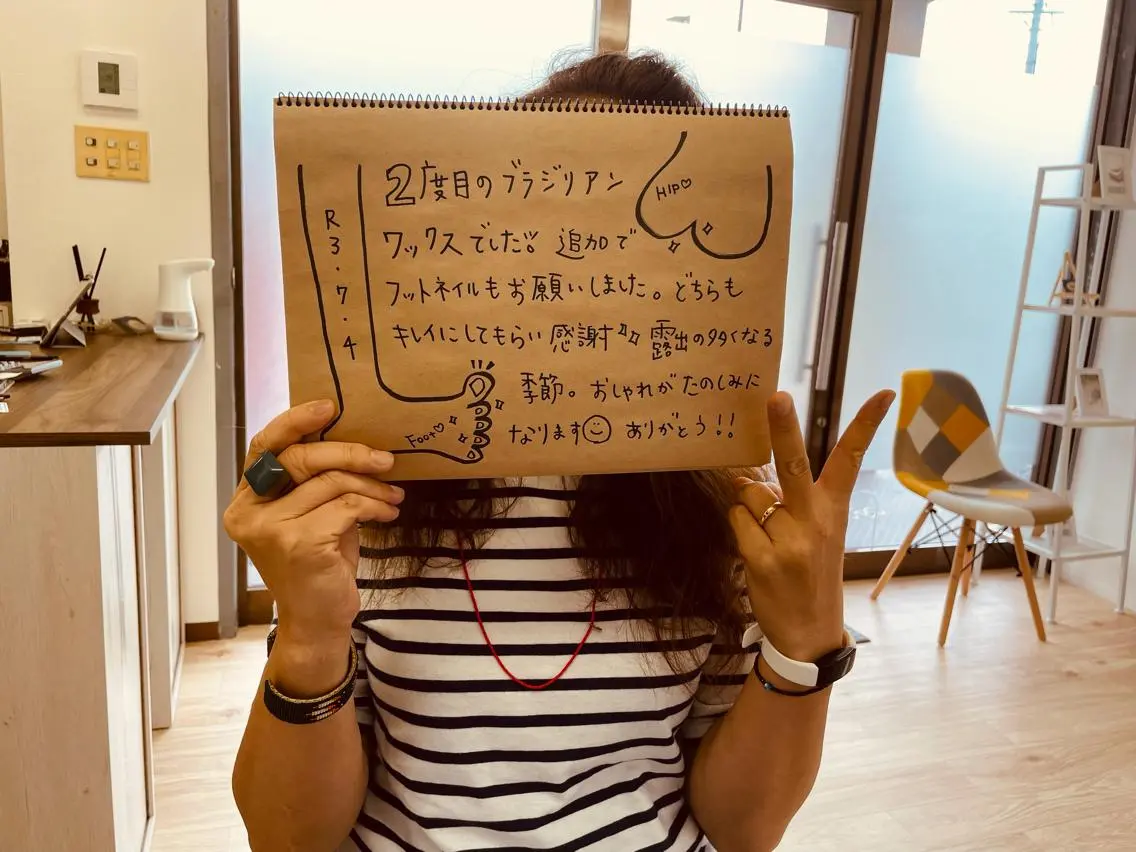 R3.7.4
2度目のブラジリアン
HIP♡
ワックスでした!! 追加で
フットネイルもお願いしました。どちらも
キレイにしてもらい感謝✨露出の多くなる
季節。おしゃれがたのしみに
なります☺ ありがとう!!
Foot♡